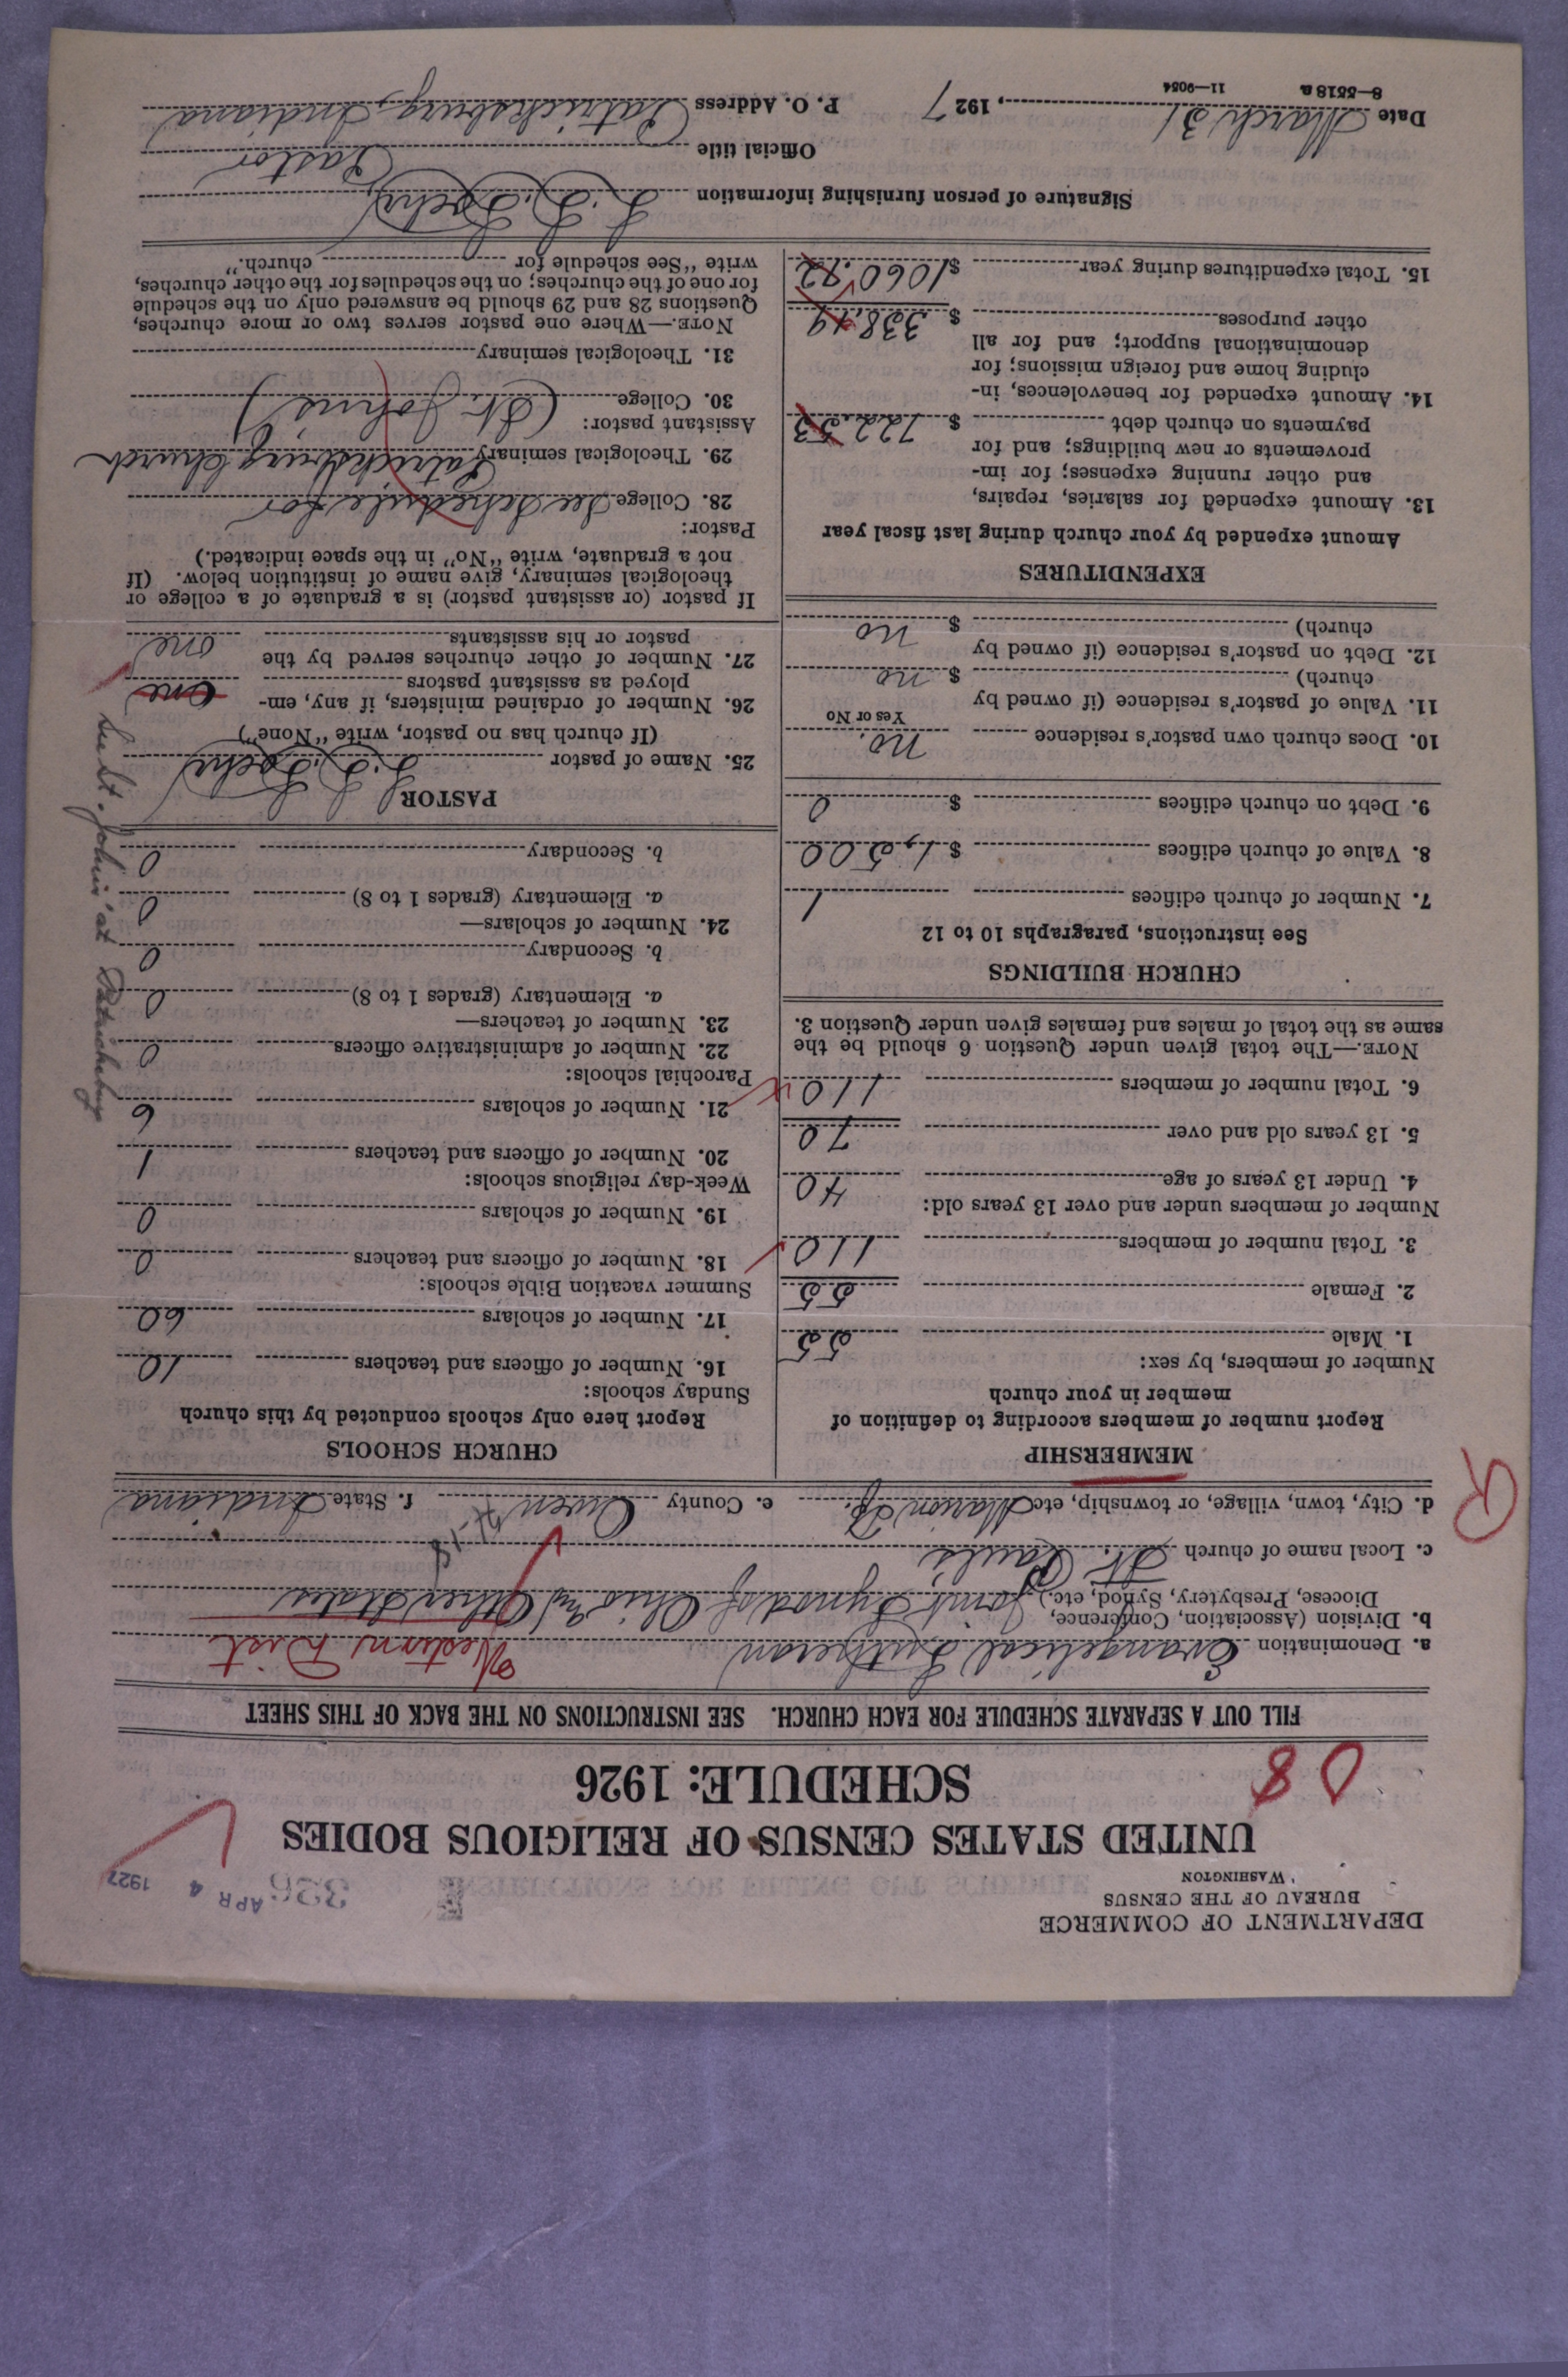 DEPARTMENT OF COMMERCE
BUREAU OF THE CENSUS
WASHINGTON
APR 4 1927
UNITED STATES CENSUS OF RELIGIOUS BODIES
SCHEDULE: 1926
08
FILL OUT A SEPARATE SCHEDULE FOR EACH CHURCH. SEE INSTRUCTIONS ON THE BACK OF THIS SHEET
a. Denomination Evangelical Lutheran Western Dist
b. Division (Association, Conference,
Diocese, Presbytery, Synod, etc.) Joint Synod of Ohio and Other States
c. Local name of church St. Paul's
d. City, town, village, or township, etc Marion Tp. e. County Owen f. State Indiana
R
MEMBERSHIP
Report number of members according to definition of
member in your church
Number of members, by sex:
1. Male 55
2. Female 55
3. Total number of members 110
Number of members under and over 13 years old:
4. Under 13 years of age 40
5. 13 years old and over 70
6. Total number of members 110
NOTE.—The total given under Question 6 should be the
same as the total of males and females given under Question 3.
CHURCH BUILDINGS
See instructions, paragraphs 10 to 12
7. Number of church edifices 1
8. Value of church edifices $ 1,500
9. Debt on church edifices $ 0
10. Does church own pastor's residence no.
Yes or No
11. Value of pastor's residence (if owned by
church) $ no
12. Debt on pastor's residence (if owned by
church) $ no
EXPENDITURES
Amount expended by your church during last fiscal year
13. Amount expended for salaries, repairs,
and other running expenses; for im-
provements or new buildings; and for
payments on church debt $ 722.53
14. Amount expended for benevolences, in-
cluding home and foreign missions; for
denominational support; and for all
other purposes $ 338.19
15. Total expenditures during year $ 1060.72
CHURCH SCHOOLS
Report here only schools conducted by this church
Sunday schools:
16. Number of officers and teachers 10
17. Number of scholars 60
Summer vacation Bible schools:
18. Number of officers and teachers 0
19. Number of scholars 0
Week-day religious schools:
20. Number of officers and teachers 1
21. Number of scholars 6
Parochial schools:
22. Number of administrative officers 0
23. Number of teachers—
a. Elementary (grades 1 to 8) 0
b. Secondary 0
24. Number of scholars—
a. Elementary (grades 1 to 8) 0
b. Secondary 0
PASTOR
25. Name of pastor
(If church has no pastor, write "None")
26. Number of ordained ministers, if any, em-
ployed as assistant pastors one
27. Number of other churches served by the
pastor or his assistants one
St. John's at Patricksburg
If pastor (or assistant pastor) is a graduate of a college or
theological seminary, give name of institution below. (If
not a graduate, write "No" in the space indicated.)
Pastor:
28. College See schedule for
29. Theological seminary Patricksburg Church
Assistant pastor:
30. College (St. John's)
31. Theological seminary
NOTE.—Where one pastor serves two or more churches,
Questions 28 and 29 should be answered only on the schedule
for one of the churches; on the schedules for the other churches,
write "See schedule for church."
Signature of person furnishing information
Official title Pastor
Date March 31, 1927 P. O. Address Patricksburg, Indiana
8—5518 a 11—9054